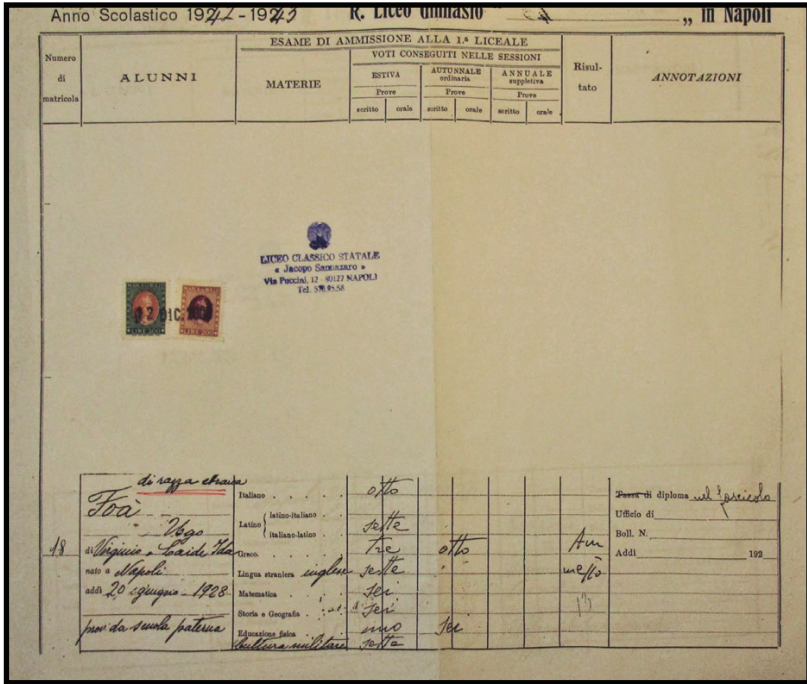 Anno Scolastico 1942-1943 R. Liceo Ginnasio „ in Napoli
ESAME DI AMMISSIONE ALLA 1.ª LICEALE
Numero di matricola
ALUNNI
MATERIE
VOTI CONSEGUITI NELLE SESSIONI
ESTIVA
AUTUNNALE ordinaria
ANNUALE suppletiva
Prove Prove Prove
scritto orale scritto orale scritto orale
Risultato
ANNOTAZIONI
LICEO CLASSICO STATALE
« Jacopo Sannazaro »
Via Puccini, 12 - 80127 NAPOLI
Tel.
LIRE 200
12 DIC
di razza ebraica
Foà
Ugo
18 di Virginio e Ida
nato a Napoli
addì 20 giugno 1928
prov. da scuola paterna
Italiano otto
Latino latino-italiano
italiano-latino sette
Greco tre otto
Lingua straniera inglese sette
Matematica sei
Storia e Geografia sei
Educazione fisica uno sei
Cultura militare sette
Ammesso
Passa di diploma nel fascicolo
Ufficio di
Boll. N.
Addì 192